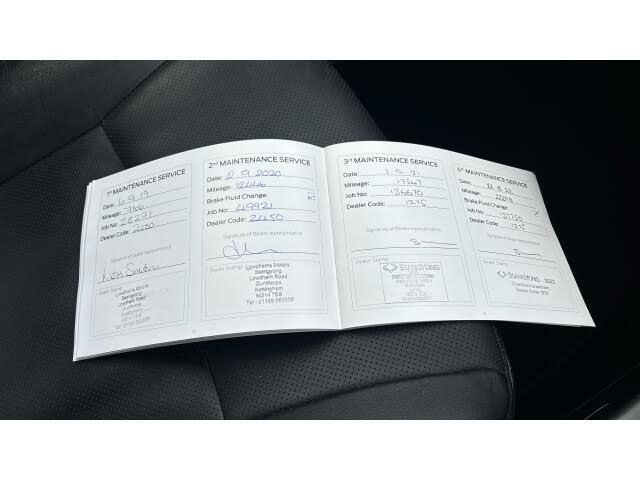 1st MAINTENANCE SERVICE
Date: 6.9.19
Mileage:
Job No: 28271
Dealer Code: 2450
Signature of Dealer representative
Dealer Stamp
Lowdhams Motors
Ssangyong
Lowdham Road
Gunthorpe
Nottingham
NG14 7ES
2nd MAINTENANCE SERVICE
Date: 2 9 2020
Mileage: 12446
Brake Fluid Change:
Job No: 49921
Dealer Code: 2450
Signature of Dealer representative
Dealer Stamp
Lowdhams Motors
Ssangyong
Lowdham Road
Gunthorpe
Nottingham
NG14 7ES
Tel: 01159 663035
3rd MAINTENANCE SERVICE
Date: 1.9.21
Mileage: 17367
Job No: 136670
Dealer Code: 1275
Signature of Dealer representative
Dealer Stamp
SSANGYONG
4th MAINTENANCE SERVICE
Date: 22.8.22
Mileage:
Brake Fluid Change:
Job No: 151750
Dealer Code: 1275
Signature of Dealer representative
Dealer Stamp
SSANGYONG 2022
Dealer Code 1275